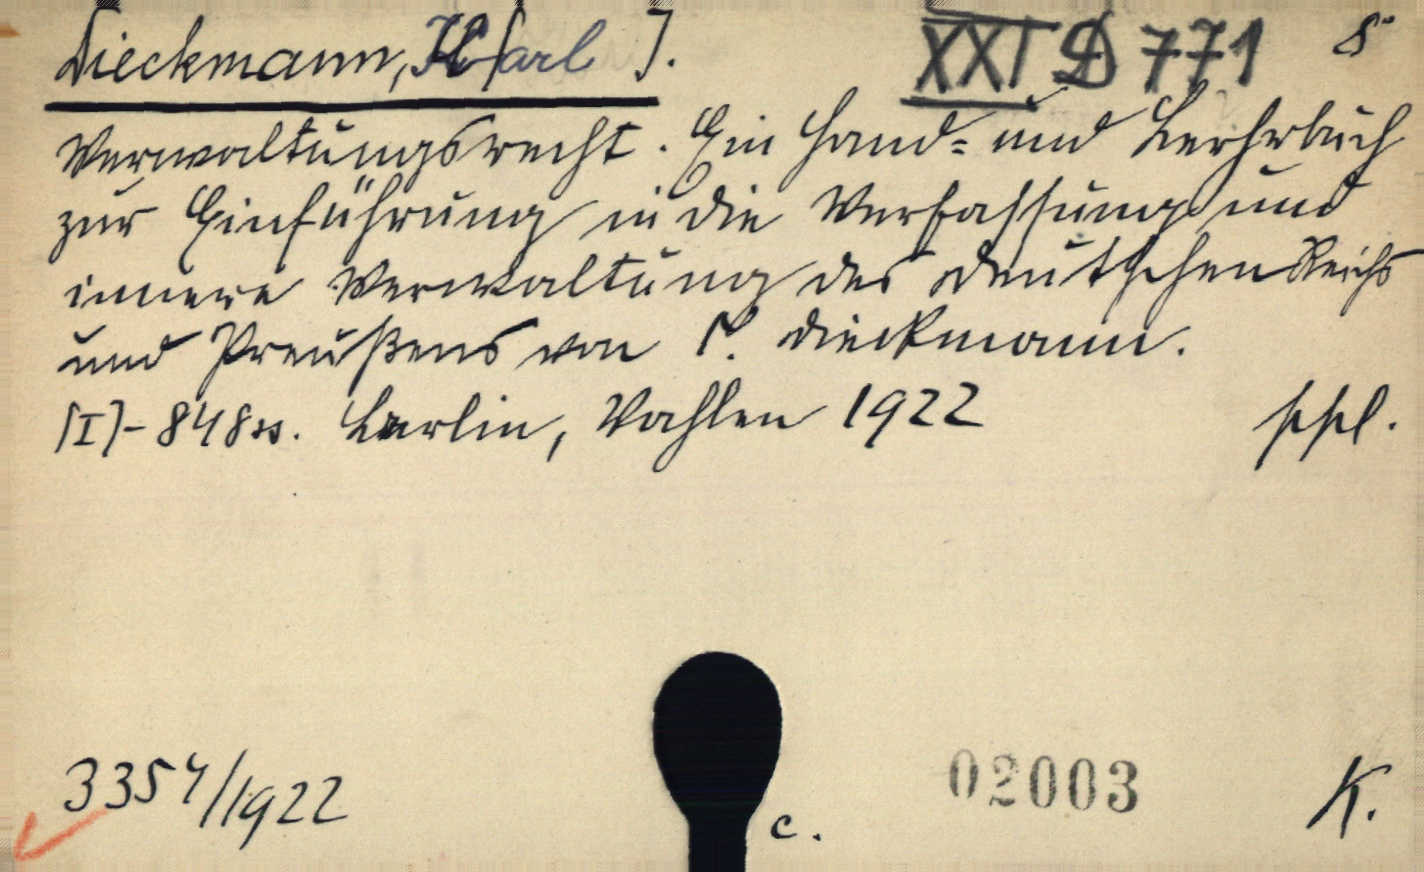 Dieckmann, K[arl].
XXI D 771 8°
Verwaltungsrecht. Ein Hand- und Lerhrbuch
zur Einführung in die Verfassung und
innere Verwaltung des deutschen Reichs
und Preußens von C. Dieckmann.
[I]-848 ss. Berlin, Vahlen 1922
3354/1922
c.
02003
K.